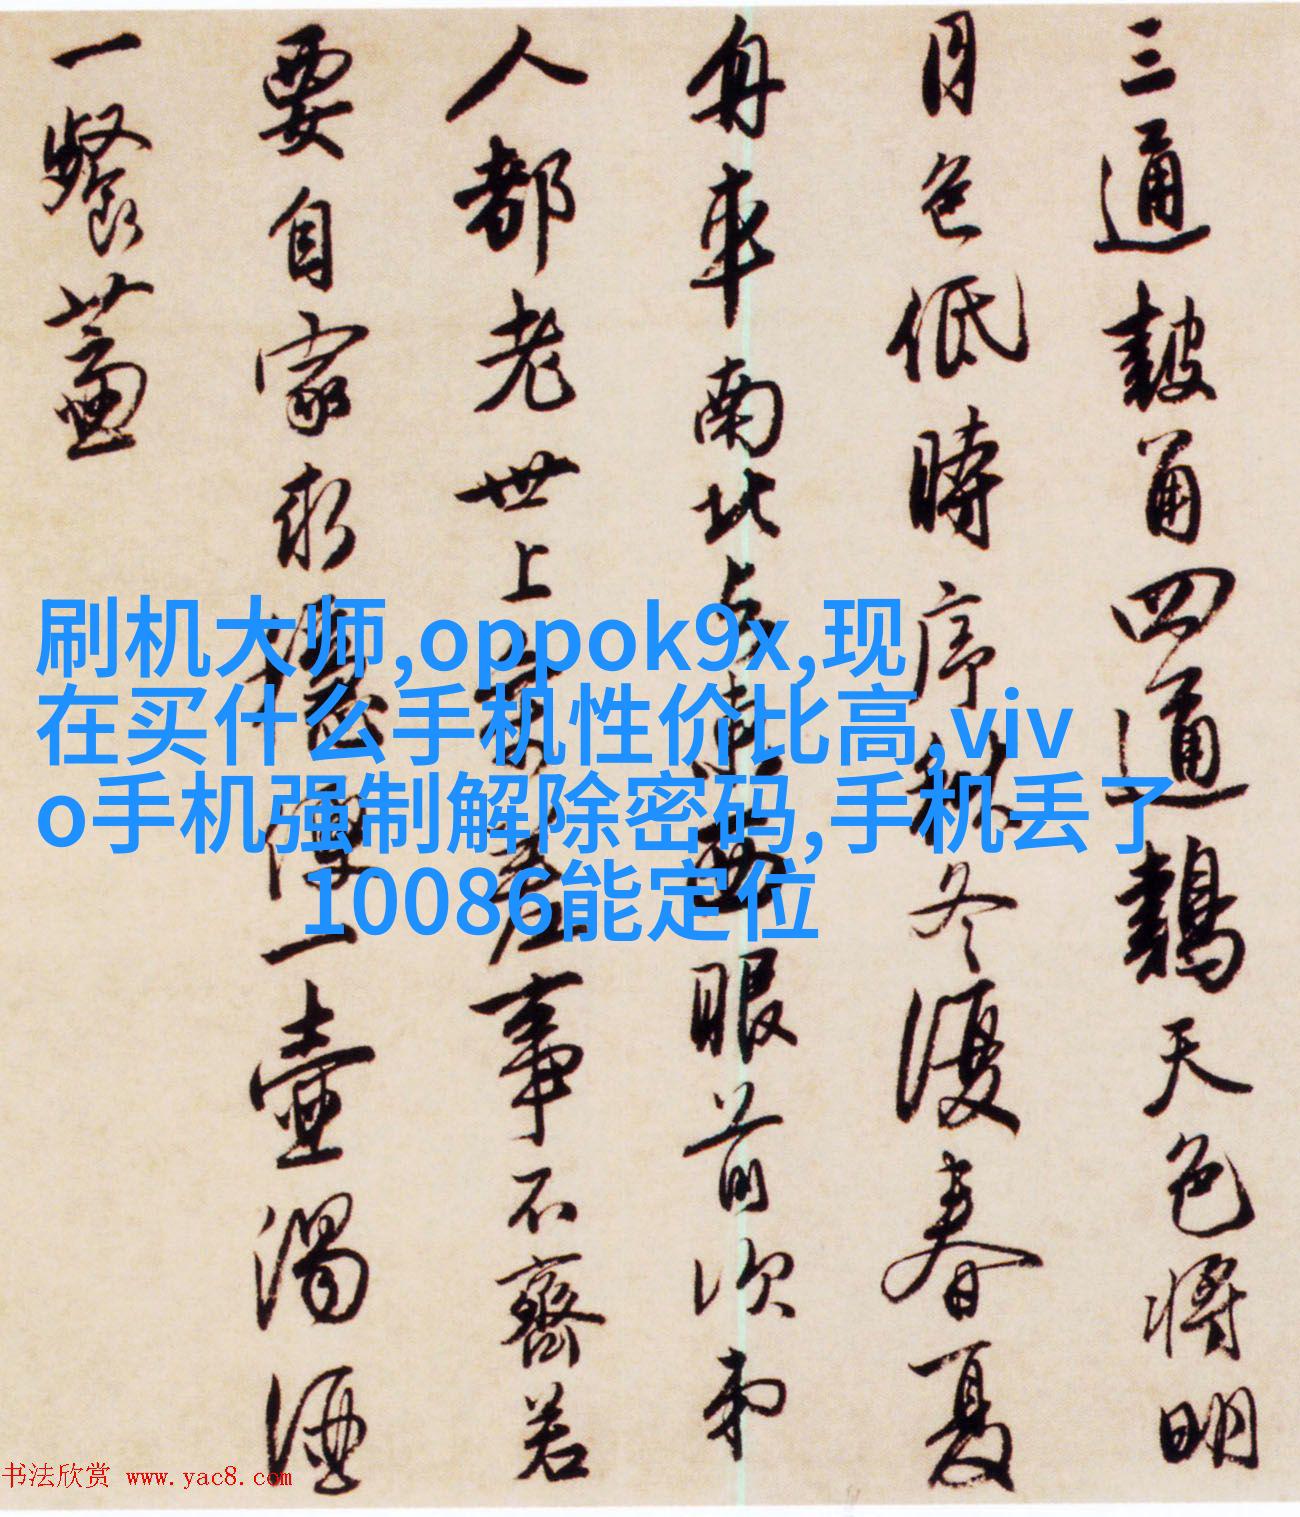 三通鼓角四通鷄天色將明
月色低時序秋冬復春夏
舟車南北東西眼前次第
人都老世上參差事不齊若
要自家求穩便一壺濁酒
一餐
刷机大师,oppok9x,现
在买什么手机性价比高,viv
o手机强制解除密码,手机丢了
10086能定位
书法欣赏 www.yac8.com